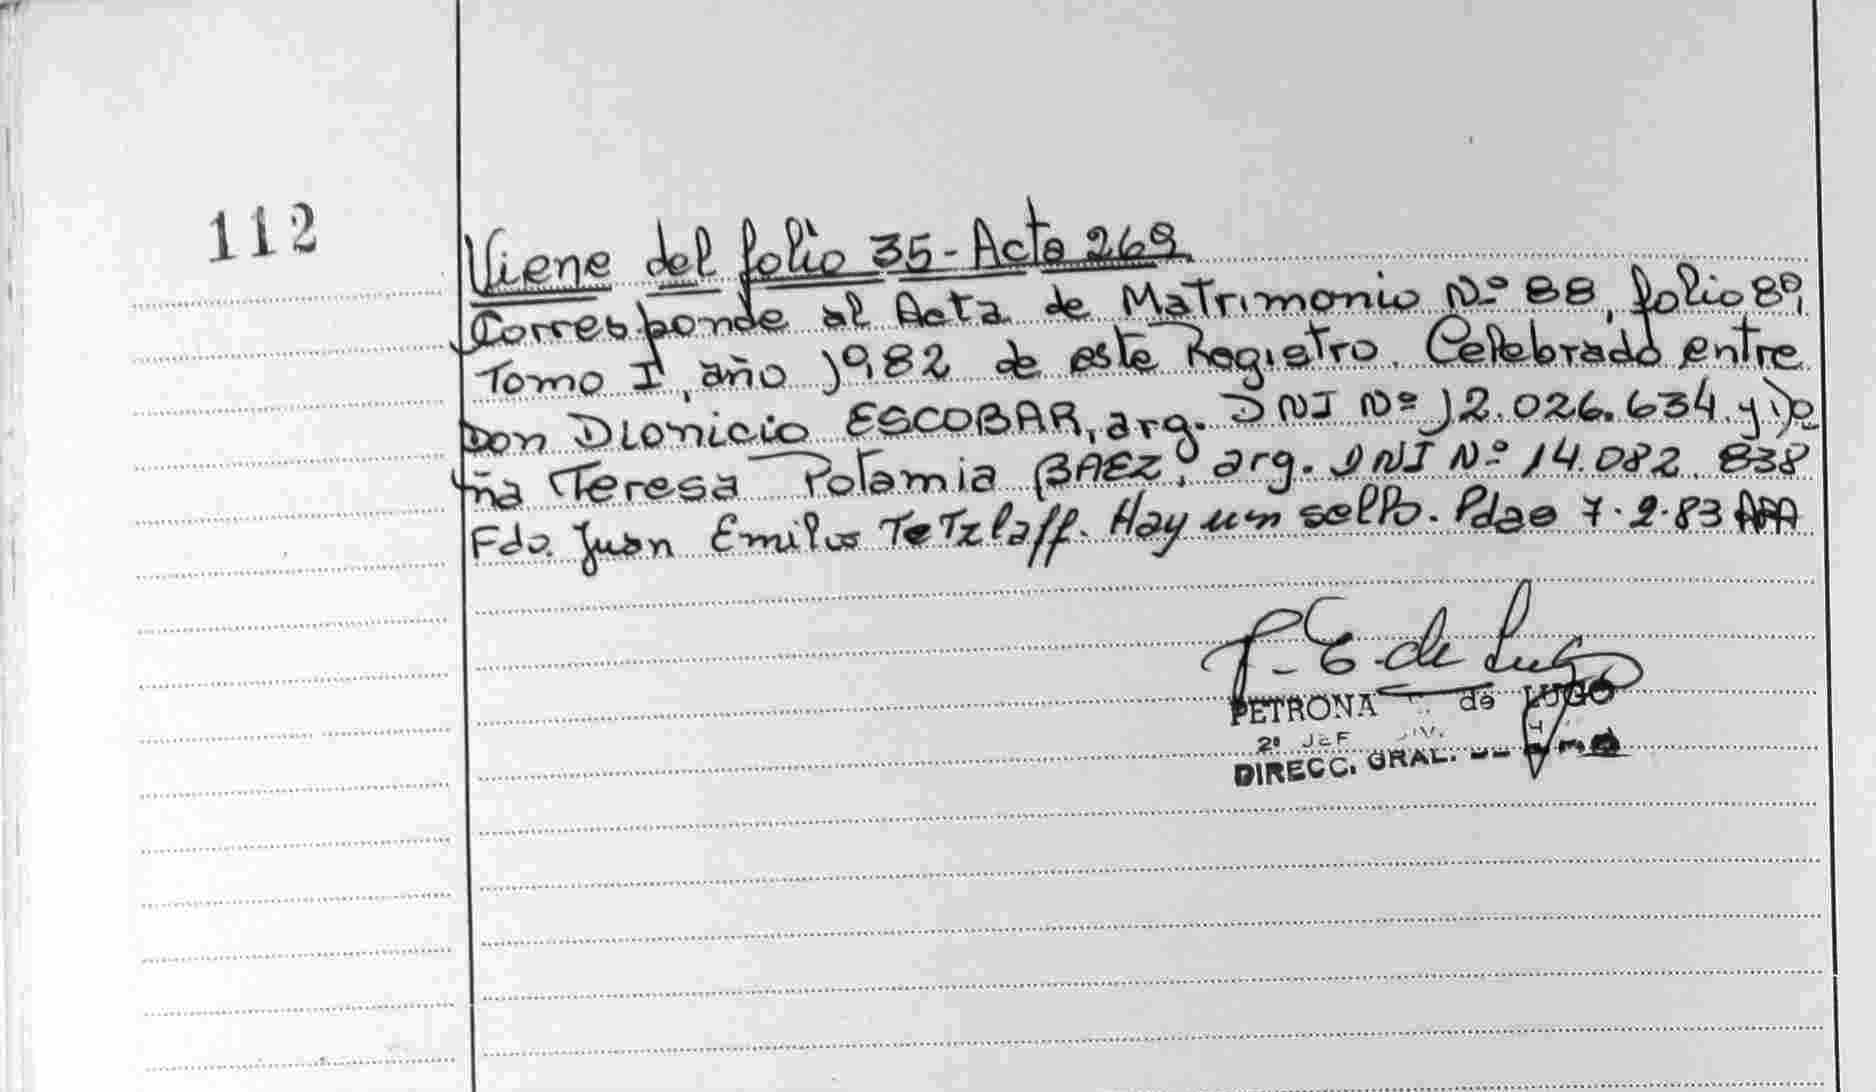 112
Viene del folio 35 - Acta 269
Corresponde al Acta de Matrimonio Nº 88, folio 89,
Tomo I, año 1982 de este Registro. Celebrado entre
Don Dionicio ESCOBAR, arg. DNI Nº 12.026.634 y Do
ña Teresa Potamia BAEZ, arg. DNI Nº 14.082.838
Fdo. Juan Emilio Tetzlaff. Hay un sello. Pdas 7.2.83
P. E. de Lugo
PETRONA de LUGO
2º JEF
DIRECC. GRAL.